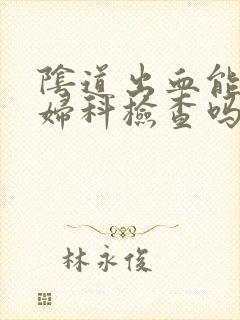 陰道出血能
婦科檢查嗎
林永俊